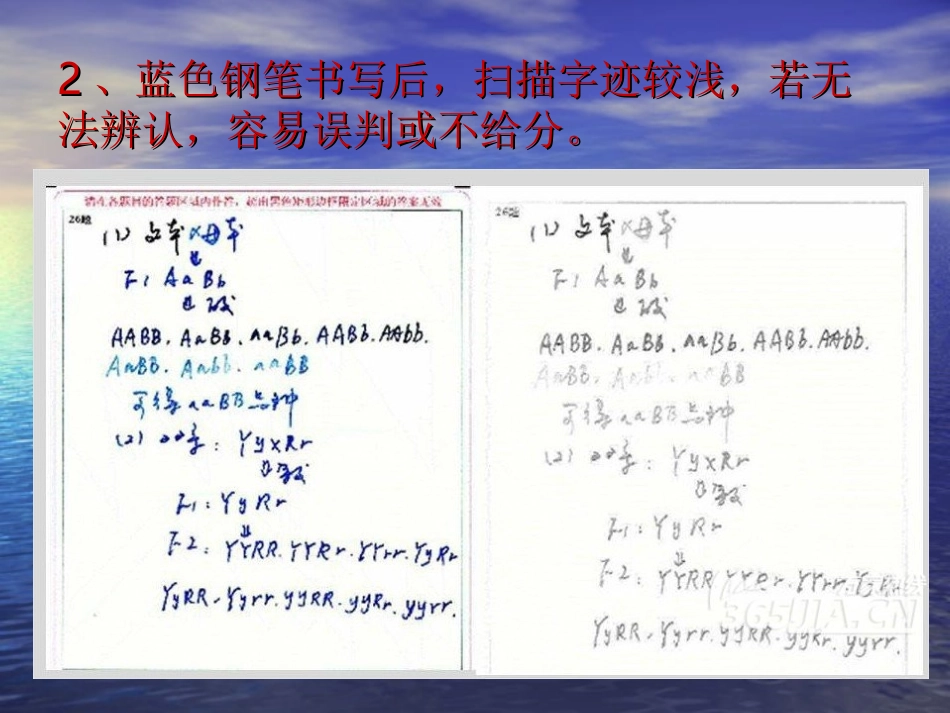 2、蓝色钢笔书写后，扫描字迹较浅，若无
法辨认，容易误判或不给分。
请在各题目的答题区域内作答，超出黑色矩形边框限定区域的答案无效
26题
(1) 父本×母本
↓
F1 AaBb
AABB. AaBb. aaBb. AABb. AAbb.
AaBB. Aabb. aaBB
可得aaBB品种
(2)
: YyxRr
F1: YyRr
↓
F2: YYRR. YYRr. YYrr. YyRr
YyRR. Yyrr. yyRR. yyRr. yyrr.
26题
(1) 父本×母本
↓
F1 AaBb
AABB. AaBb. aaBb. AABb. AAbb.
AaBB. Aabb. aaBB
可得aaBB品种
(2)
: YyxRr
F1: YyRr
↓
F2: YYRR YYRr. YYrr.
YyRR. Yyrr. yyRR. yyRr. yyrr.
365JIA.CN